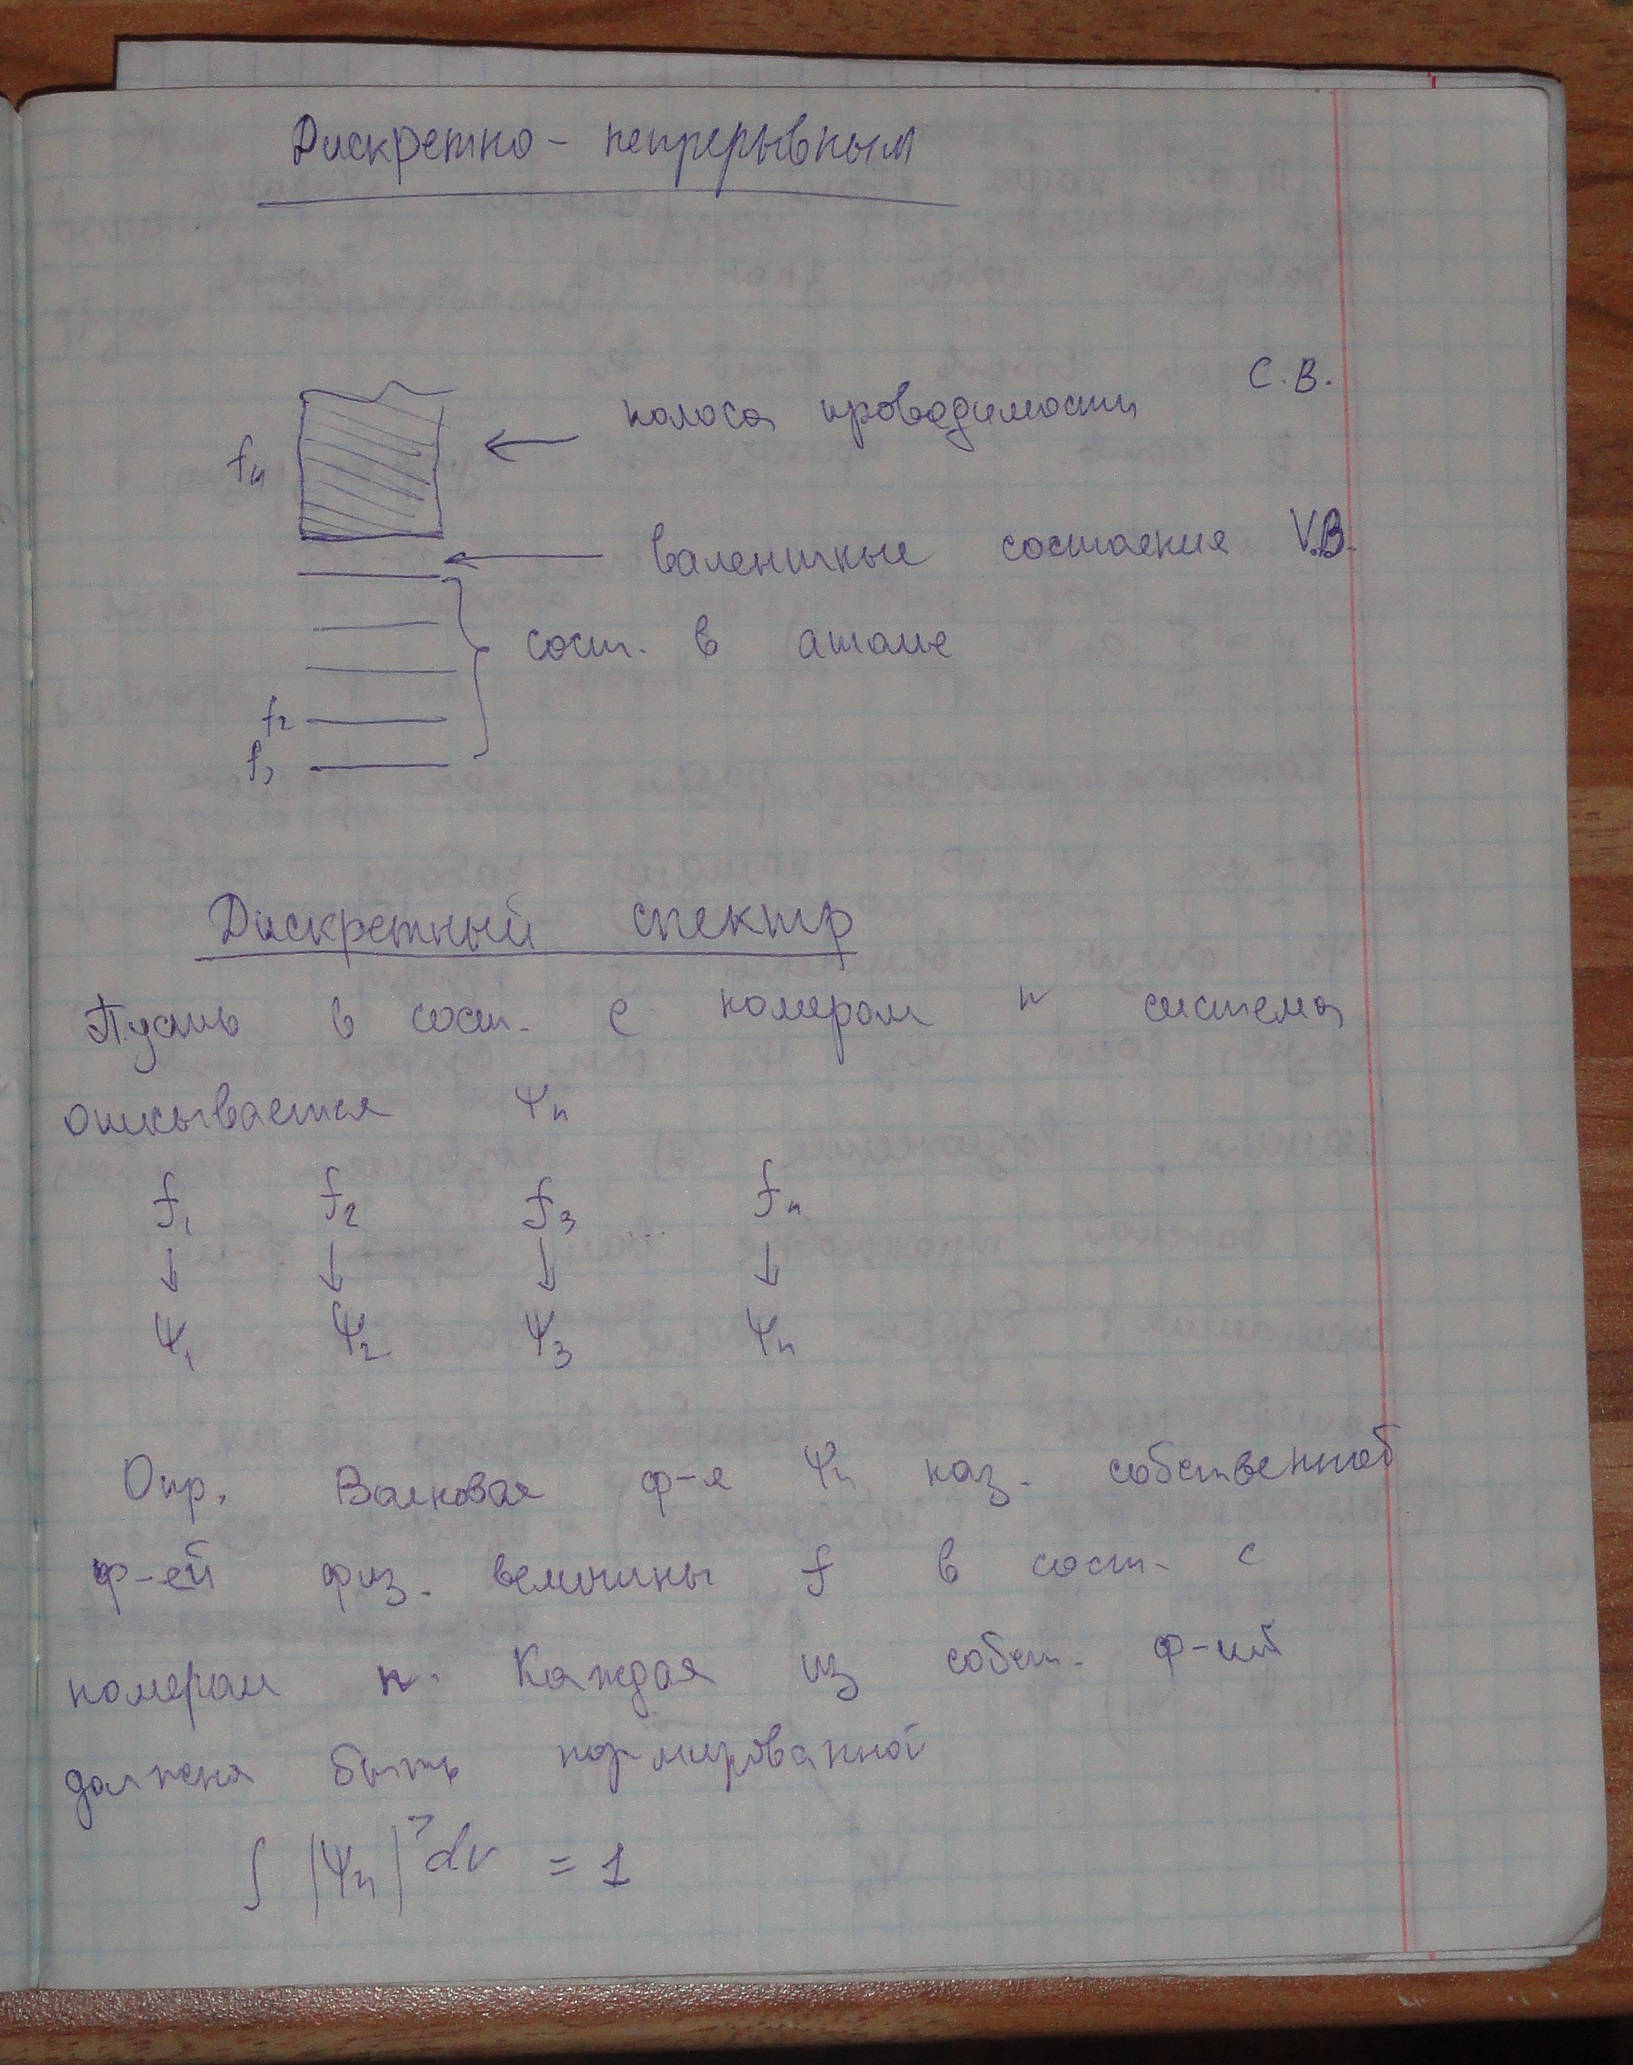 Дискретно - непрерывным
полоса проводимости C.B.
fn
валентные состояния V.B.
сост. в атоме
f2
f1
Дискретный спектр
Пусть в сост. с номером n система
описывается Ψn
f1 f2 f3 ... fn
↓ ↓ ↓ ↓
Ψ1 Ψ2 Ψ3 Ψn
Опр. Волновая ф-я Ψn наз. собственной
ф-ей физ. величины f в сост. с
номером n. Каждая из собст. ф-ий
должна быть нормированной
∫ |Ψn|² dv = 1